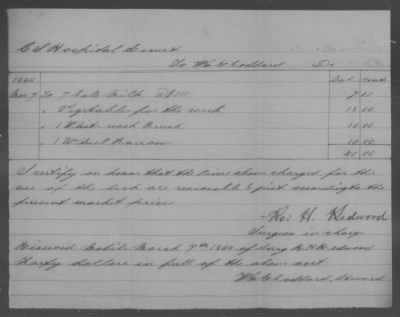 C S Hospital
To W C Goddard Dr
1864 Dol cents
Mar 7 To 7 Galls Milk 7 00
" Vegetables for the week 13 00
" 1 White wash Brush 10 00
" 1 Wheel Barrow 10 00
40 00
I certify on honor that the prices above charged for the
use of the sick are reasonable & just according to the
present market prices
H. Redwood
Surgeon in charge
Received Mobile March 7th 1864 of Surg R H Redwood
dollars in full of the above acct
W C Goddard, Steward